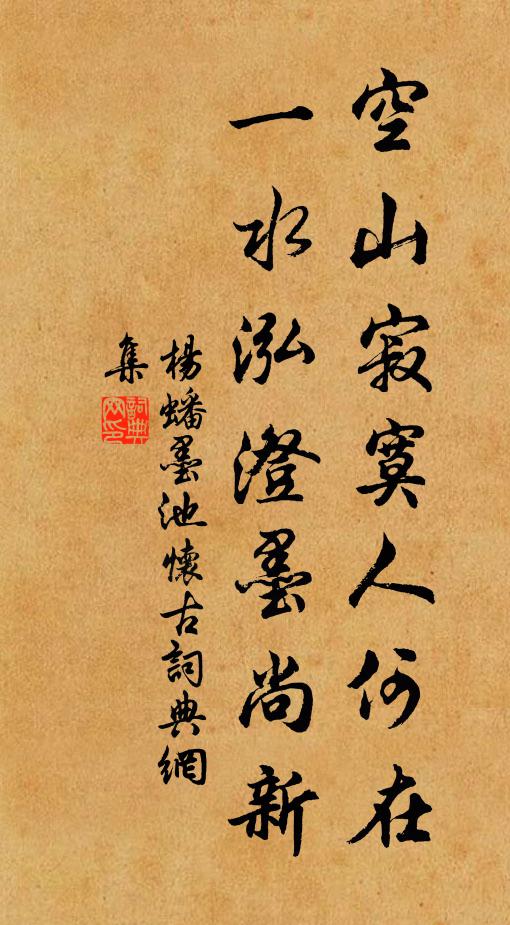 空山寂寞人何在
一水泓澄墨尚新
楊蟠墨池懷古詞典網
集
詞典网印